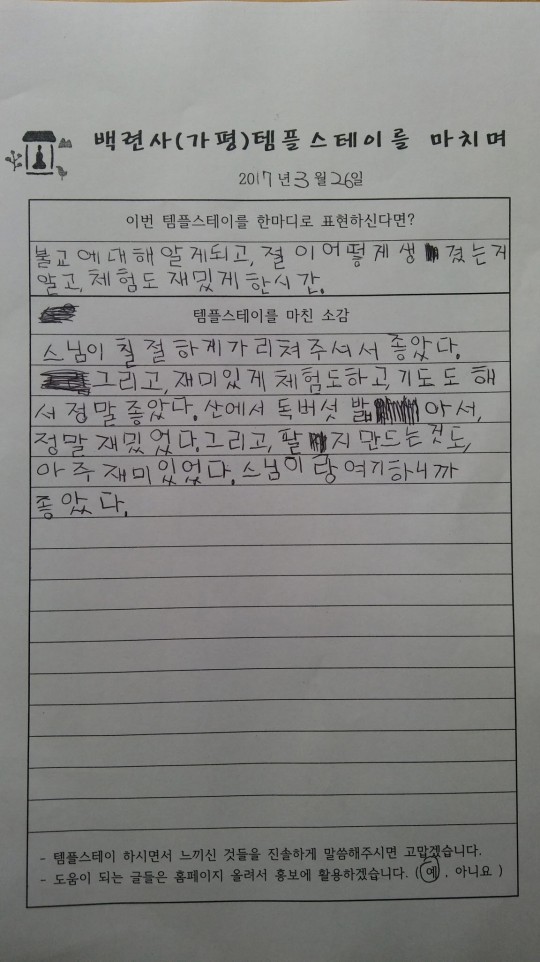 백련사(가평)템플스테이를 마치며
2017년 3월 26일
이번 템플스테이를 한마디로 표현하신다면?
불교에 대해 알게되고, 절이 어떻게 생겼는지
알고, 체험도 재밌게 한시간.
템플스테이를 마친 소감
스님이 칠절하게 가리쳐주셔서 좋았다.
그리고, 재미있게 체험도하고, 기도도 해
서 정말 좋았다. 산에서 독버섯 밟아서,
정말 재밌었다. 그리고, 팔지 만드는 것도,
아주 재미있었다. 스님이랑 여기하니까
좋았다.
- 템플스테이 하시면서 느끼신 것들을 진솔하게 말씀해주시면 고맙겠습니다.
- 도움이 되는 글들은 홈페이지 올려서 홍보에 활용하겠습니다. ( 예 , 아니요 )